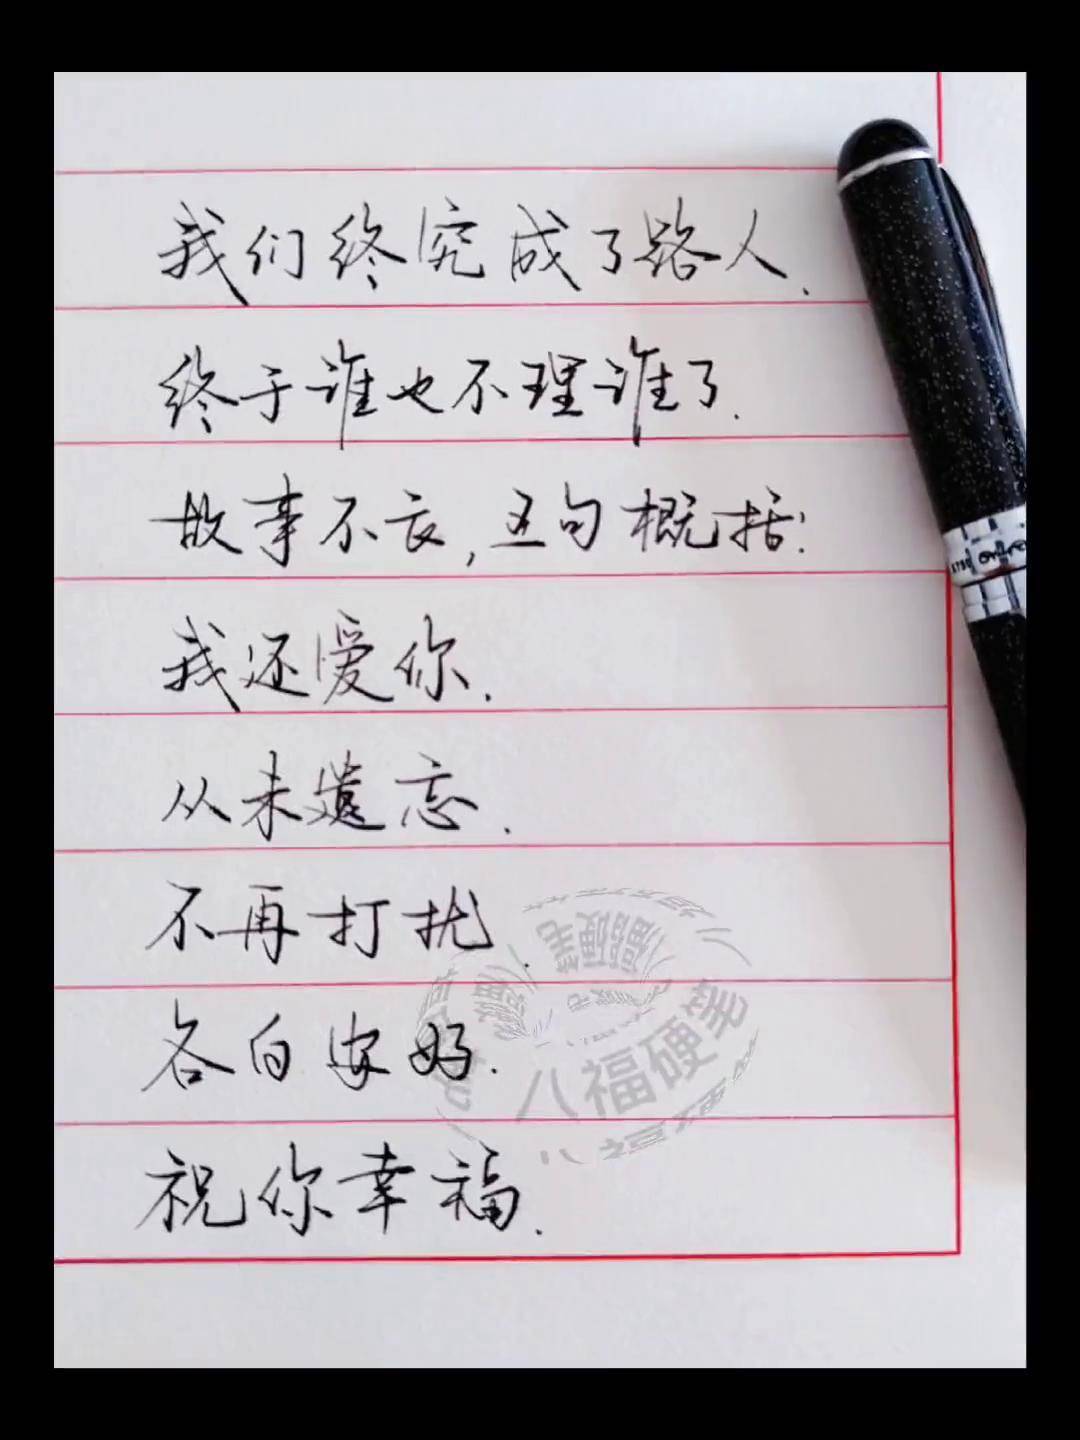 我们终究成了路人.
终于谁也不理谁了.
故事不长,五句概括:
我还爱你.
从未遗忘.
不再打扰.
各自安好.
祝你幸福.
八福硬笔